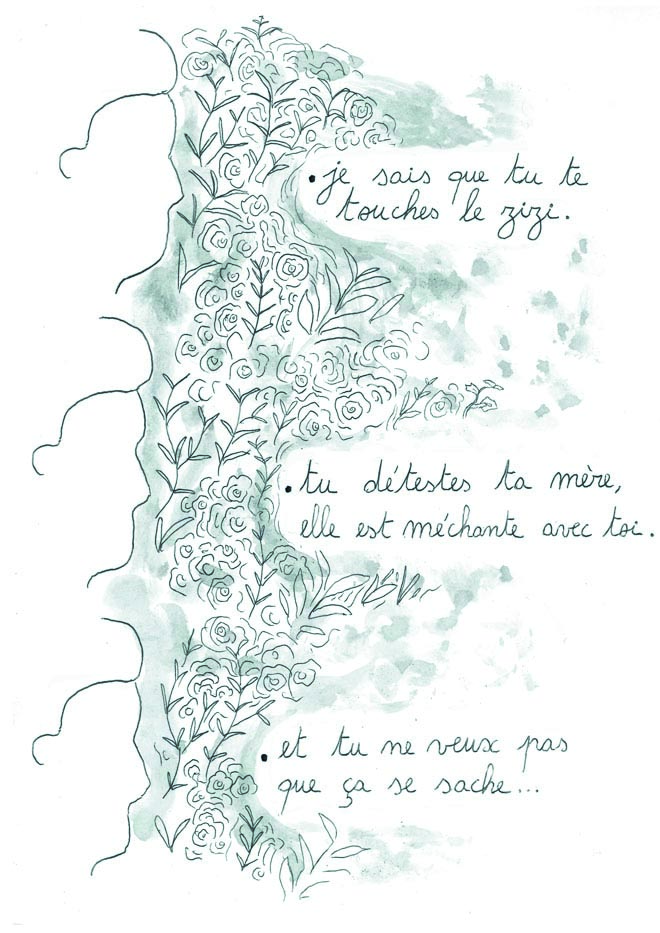 • je sais que tu te
touches le zizi.
• tu détestes ta mère,
elle est méchante avec toi.
• et tu ne veux pas
que ça se sache...